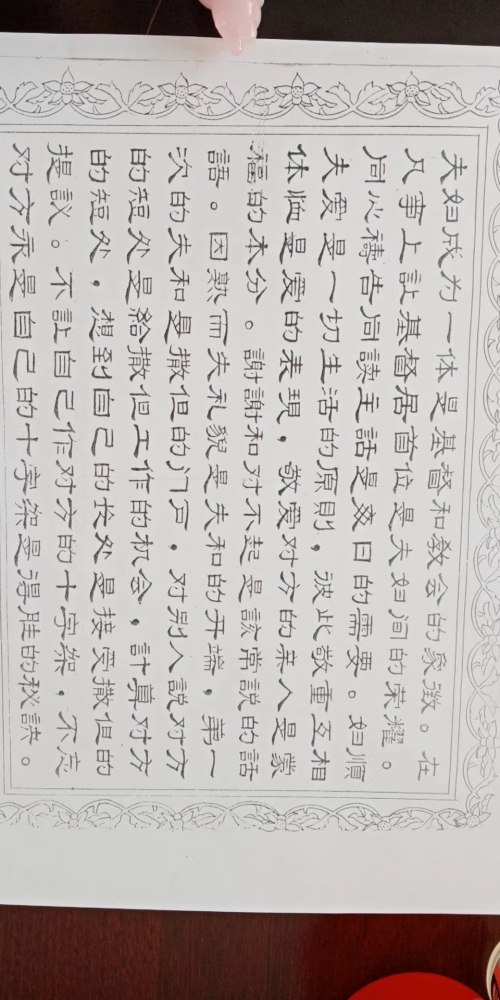 夫妇成为一体是基督和教会的象徵。在
凡事上让基督居首位是夫妇间的荣耀。
同心禱告同讀主話是每日的需要。妇順
夫爱是一切生活的原則,彼此敬重互相
体恤是爱的表現,敬爱对方的亲人是蒙
福的本分。謝謝和对不起是該常説的話
語。因熟而失礼貌是失和的开端,第一
次的失和是撒但的门户,对别人説对方
的短处是給撒但工作的机会,計算对方
的短处,想到自己的长处是接受撒但的
提議。不讓自己作对方的十字架,不忘
对方乘是自己的十字架是得胜的秘訣。